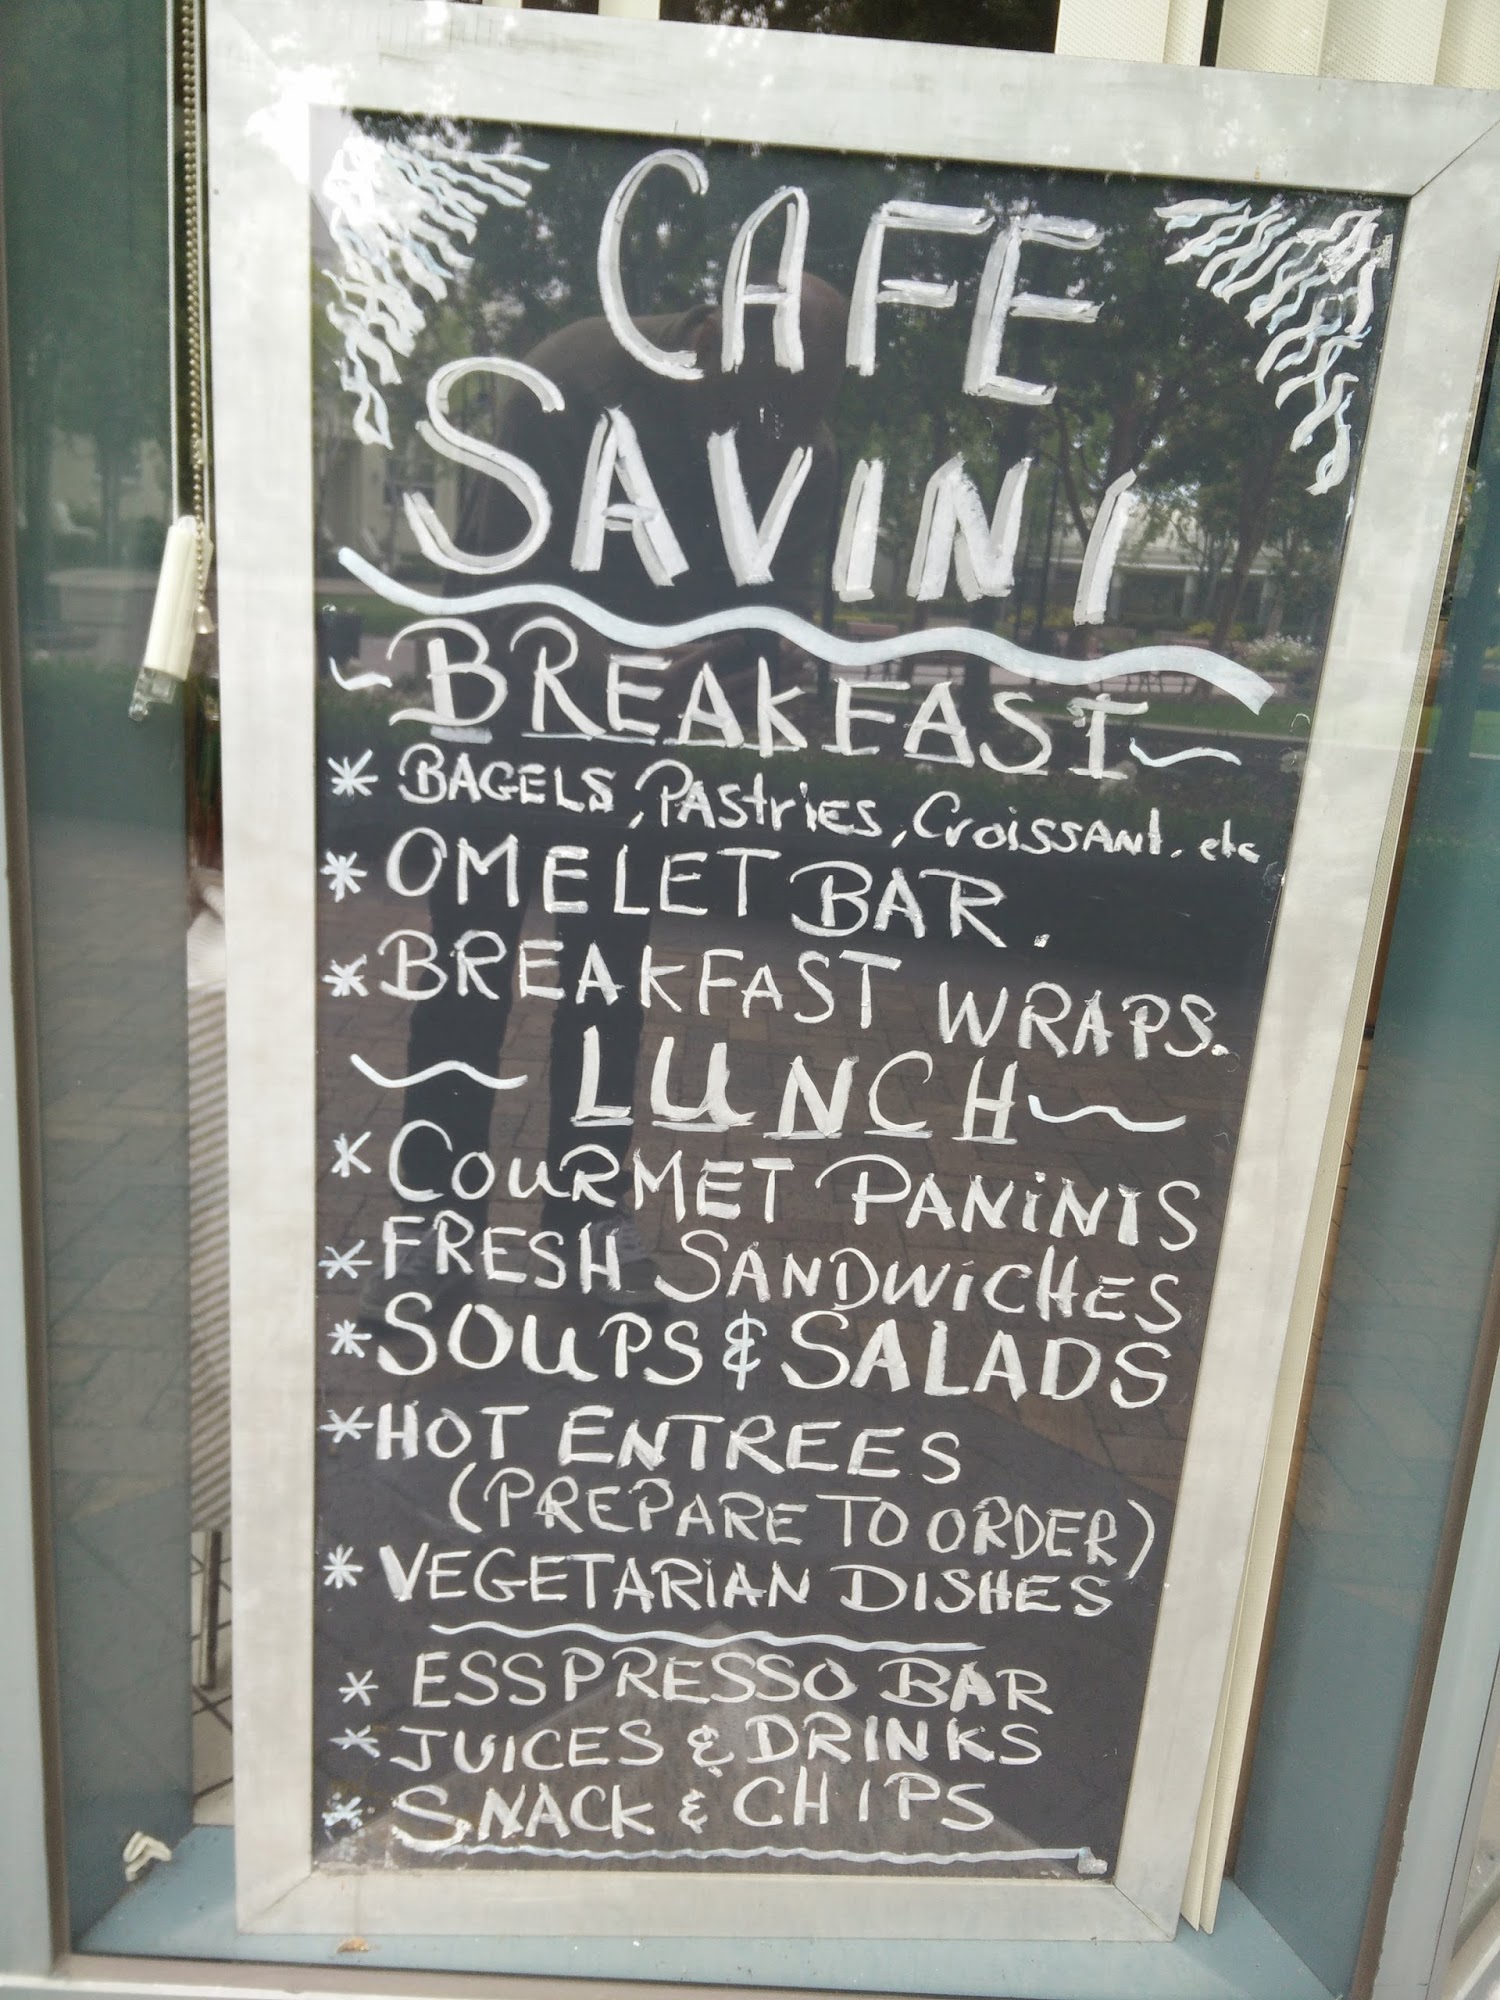 CAFE
SAVINI
BREAKFAST
* BAGELS, PAStriES, CroissANt, etc
* OMELET BAR.
* BREAKFAST WRAPS.
LUNCH
* GOURMET PANiNIS
* FRESH SANDWiCHES
* SOUPS & SALADS
* HOT ENTREES
(PREPARE TO ORDER)
* VEGETARiAN DISHES
* ESSPRESSO BAR
* JUICES & DRINKS
* SNACK & CHIPS